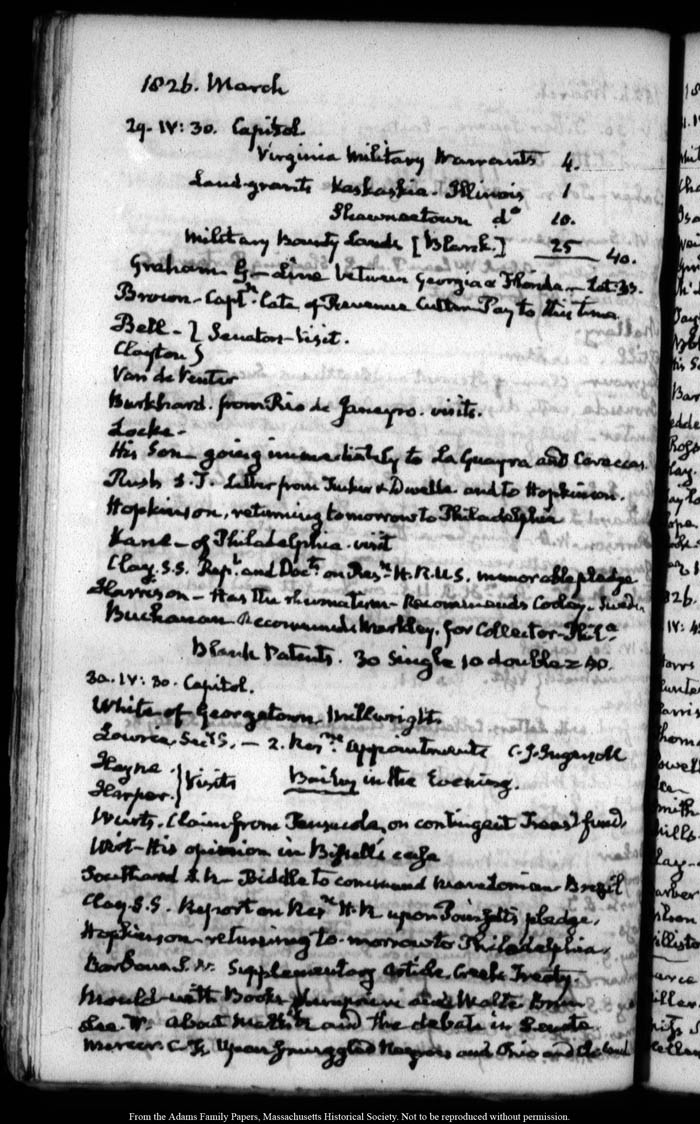 1826. March
29. IV: 30. Capitol.
Virginia Military Warrants 4.
Land-grants Kaskaskia. Illinois 1
Shawneetown do 10.
Military Bounty Lands [Blank.] 25 40.
Graham G.- Line between Georgia & Florida - Lat. 
Brown - Captn. late of Revenue Cutter Pay to this time
Bell - } Senators - Visit.
Clayton }
Van de Venter
Burkhard. from Rio de Janeyro. visits.
Locke-
His Son - going immediately to La Guayra and Caraccas.
Rush S.T. Letter from Tucker & and to Hopkinson.
Hopkinson, returning tomorrow to Philadelphia
Kane - of Philadelphia. visit
Clay. S.S. Rept. and Docts. on Resn. H.R.U.S. memorable pledge
Harrison - Has the rheumatism - Recommends Cooley. Sweden
Buchanan Recommends Markley. for Collector. Phila
Blank Patents. 30 Single 10 double = 40.
30. IV: 30. Capitol.
White of Georgetown. Millwright.
Lowrie. Secy S. - 2. Resns. Appointments C. J. Ingersoll
Hayne. } Visits Bailey in the Evening.
Harper. }
Wirts. Claim from Pensacola, on contingent Treasy fund,
Wirt - His opinion in Bissell's case
Southard S.N - Biddle to command Macedonian Brazil
Clay. S.S. Report on Resn. H.R upon Poinsett's pledge,
Hopkinson - returning to-morrow to Philadelphia,
Barbour S.W. Supplementary Article, Creek Treaty
Mould with Books and Malte Brun
Lee. W. about and the debate in Senate
Mercer. C. F. Upon Smuggled Negroes and Ohio and
From the Adams Family Papers, Massachusetts Historical Society. Not to be reproduced without permission.